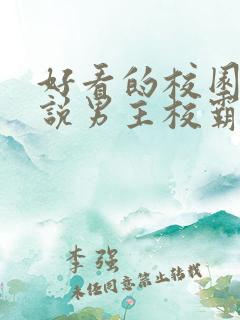 好看的校园
說男主校霸
李强
未经同意禁止转载